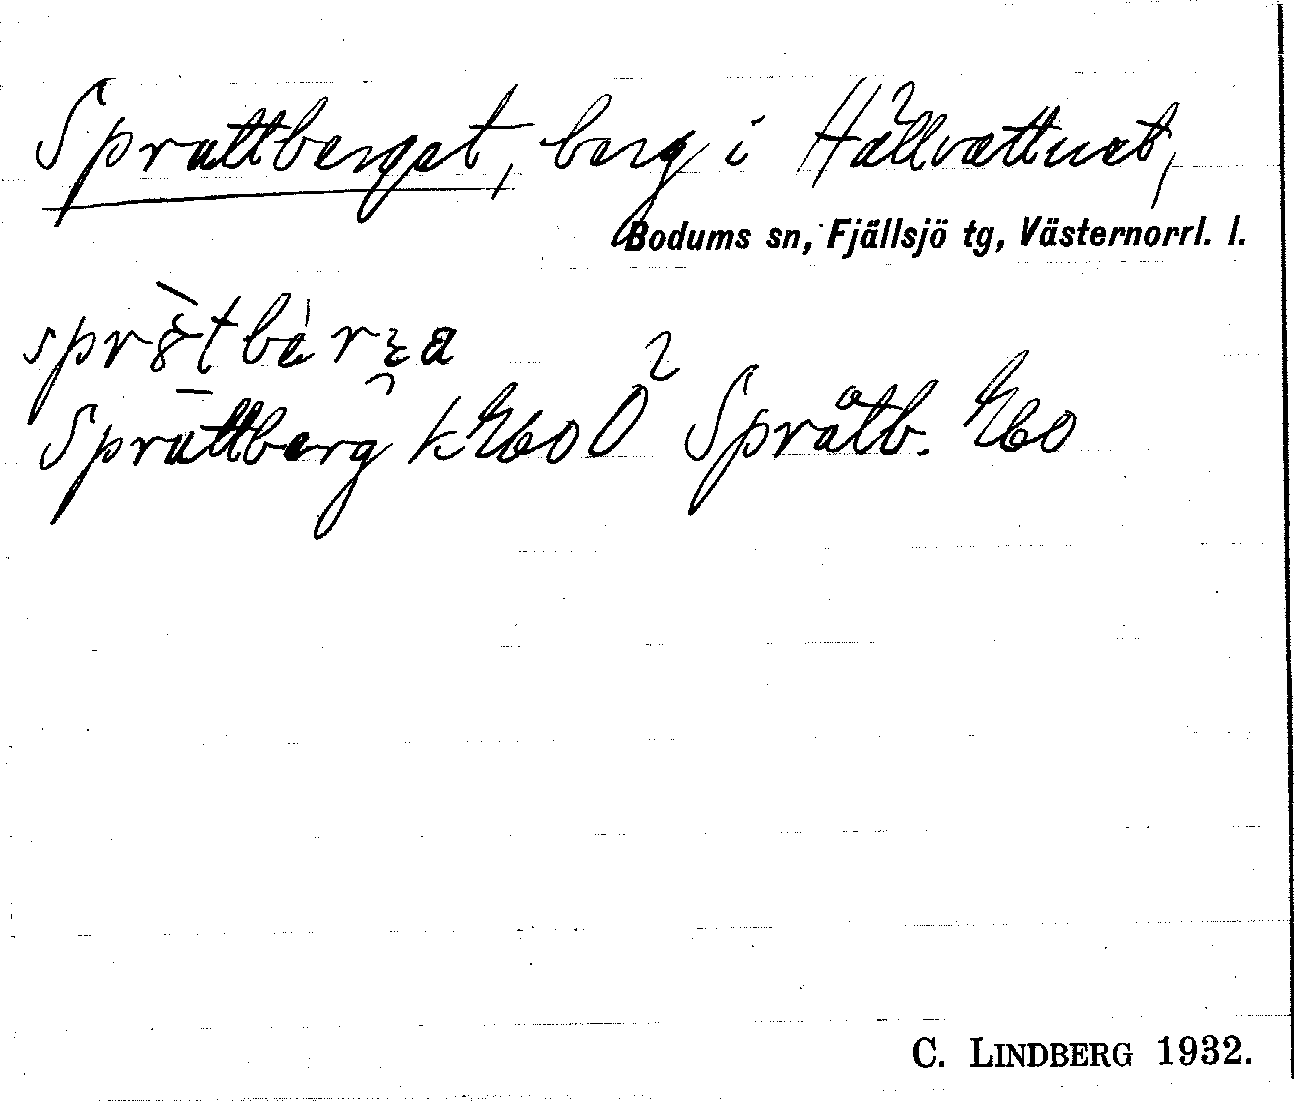 Sprattberget, berg i Hållvattnet,
Bodums sn, Fjällsjö tg, Västernorrl. l.
Sprattberg Språtb.
C. LINDBERG 1932.